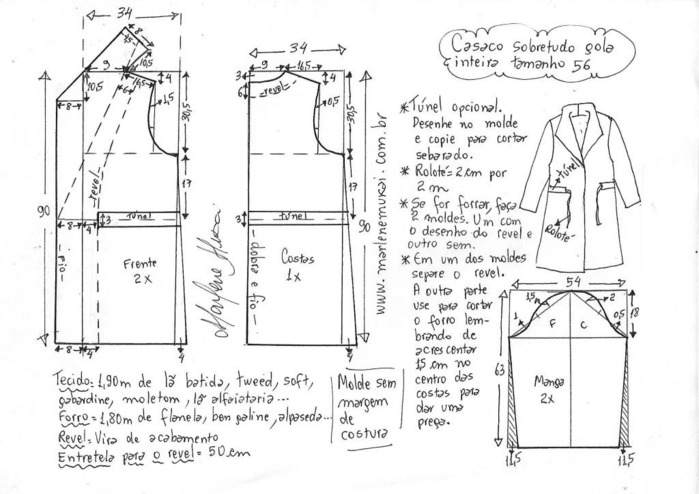 34
8
15
10,5
9
16,5
6
4
10,5
8
1,5
30,5
17
90
revel
3
túnel
8
4
fio
Frente
2x
8
4
4
Marlene Mukai
34
9
16,5
3
6
4
revel
0,5
30,5
17
90
3
túnel
dobra e fio
Costas
1x
4
www.marlenemukai.com.br
Casaco sobretudo gola
inteira tamanho 56
* Túnel opcional.
Desenhe no molde
e copie para cortar
sebarado.
* Rolotê = 2cm por
2m
* Se for forrar, faça
2 moldes. Um com
o desenho do revel e
outro sem.
* Em um dos moldes
separe o revel.
A outra parte
use para cortar
o forro lem-
brando de
acrescentar
15cm no
centro das
costas para
dar uma
prega.
túnel
Rolotê
54
1
1,5
2
0,5
18
F
C
63
Manga
2x
11,5
11,5
Tecido = 1,90m de lã batida, tweed, soft,
gabardine, moletom, lã alfaiataria...
Forro = 1,80m de flanela, bengaline, alpaseda...
Revel = Vira de acabamento
Entretela para o revel = 50cm
Molde sem
margem
de
costura